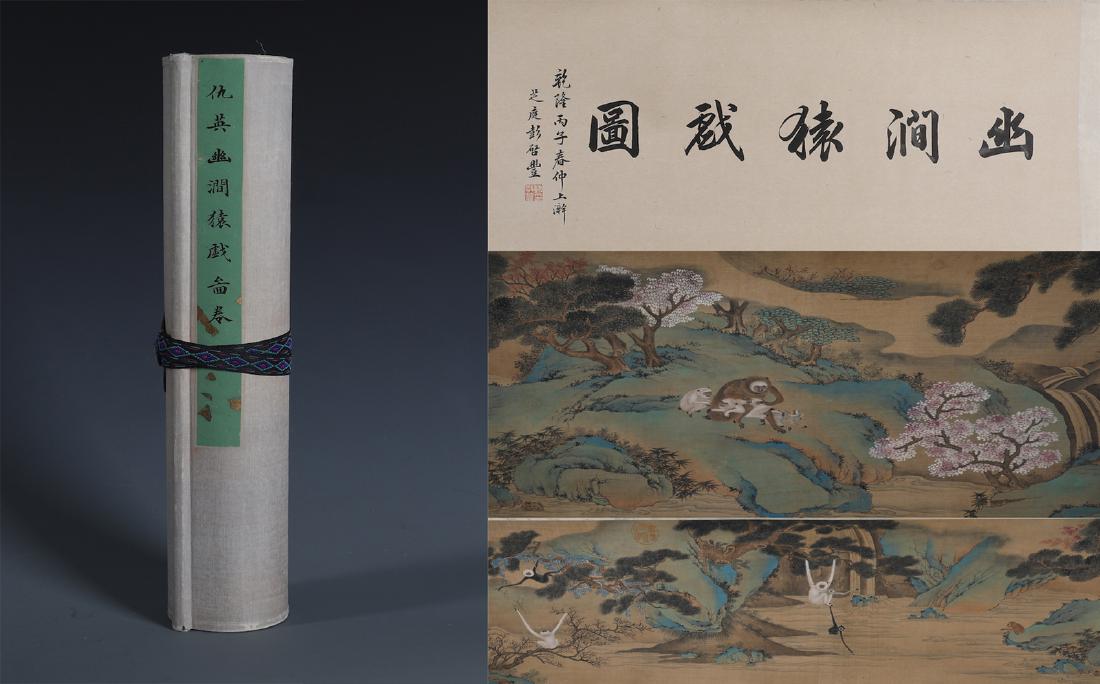 仇英幽澗猿戲啚卷
幽澗猿戲圖
乾隆丙子春仲上澣
芝庭彭啓豐